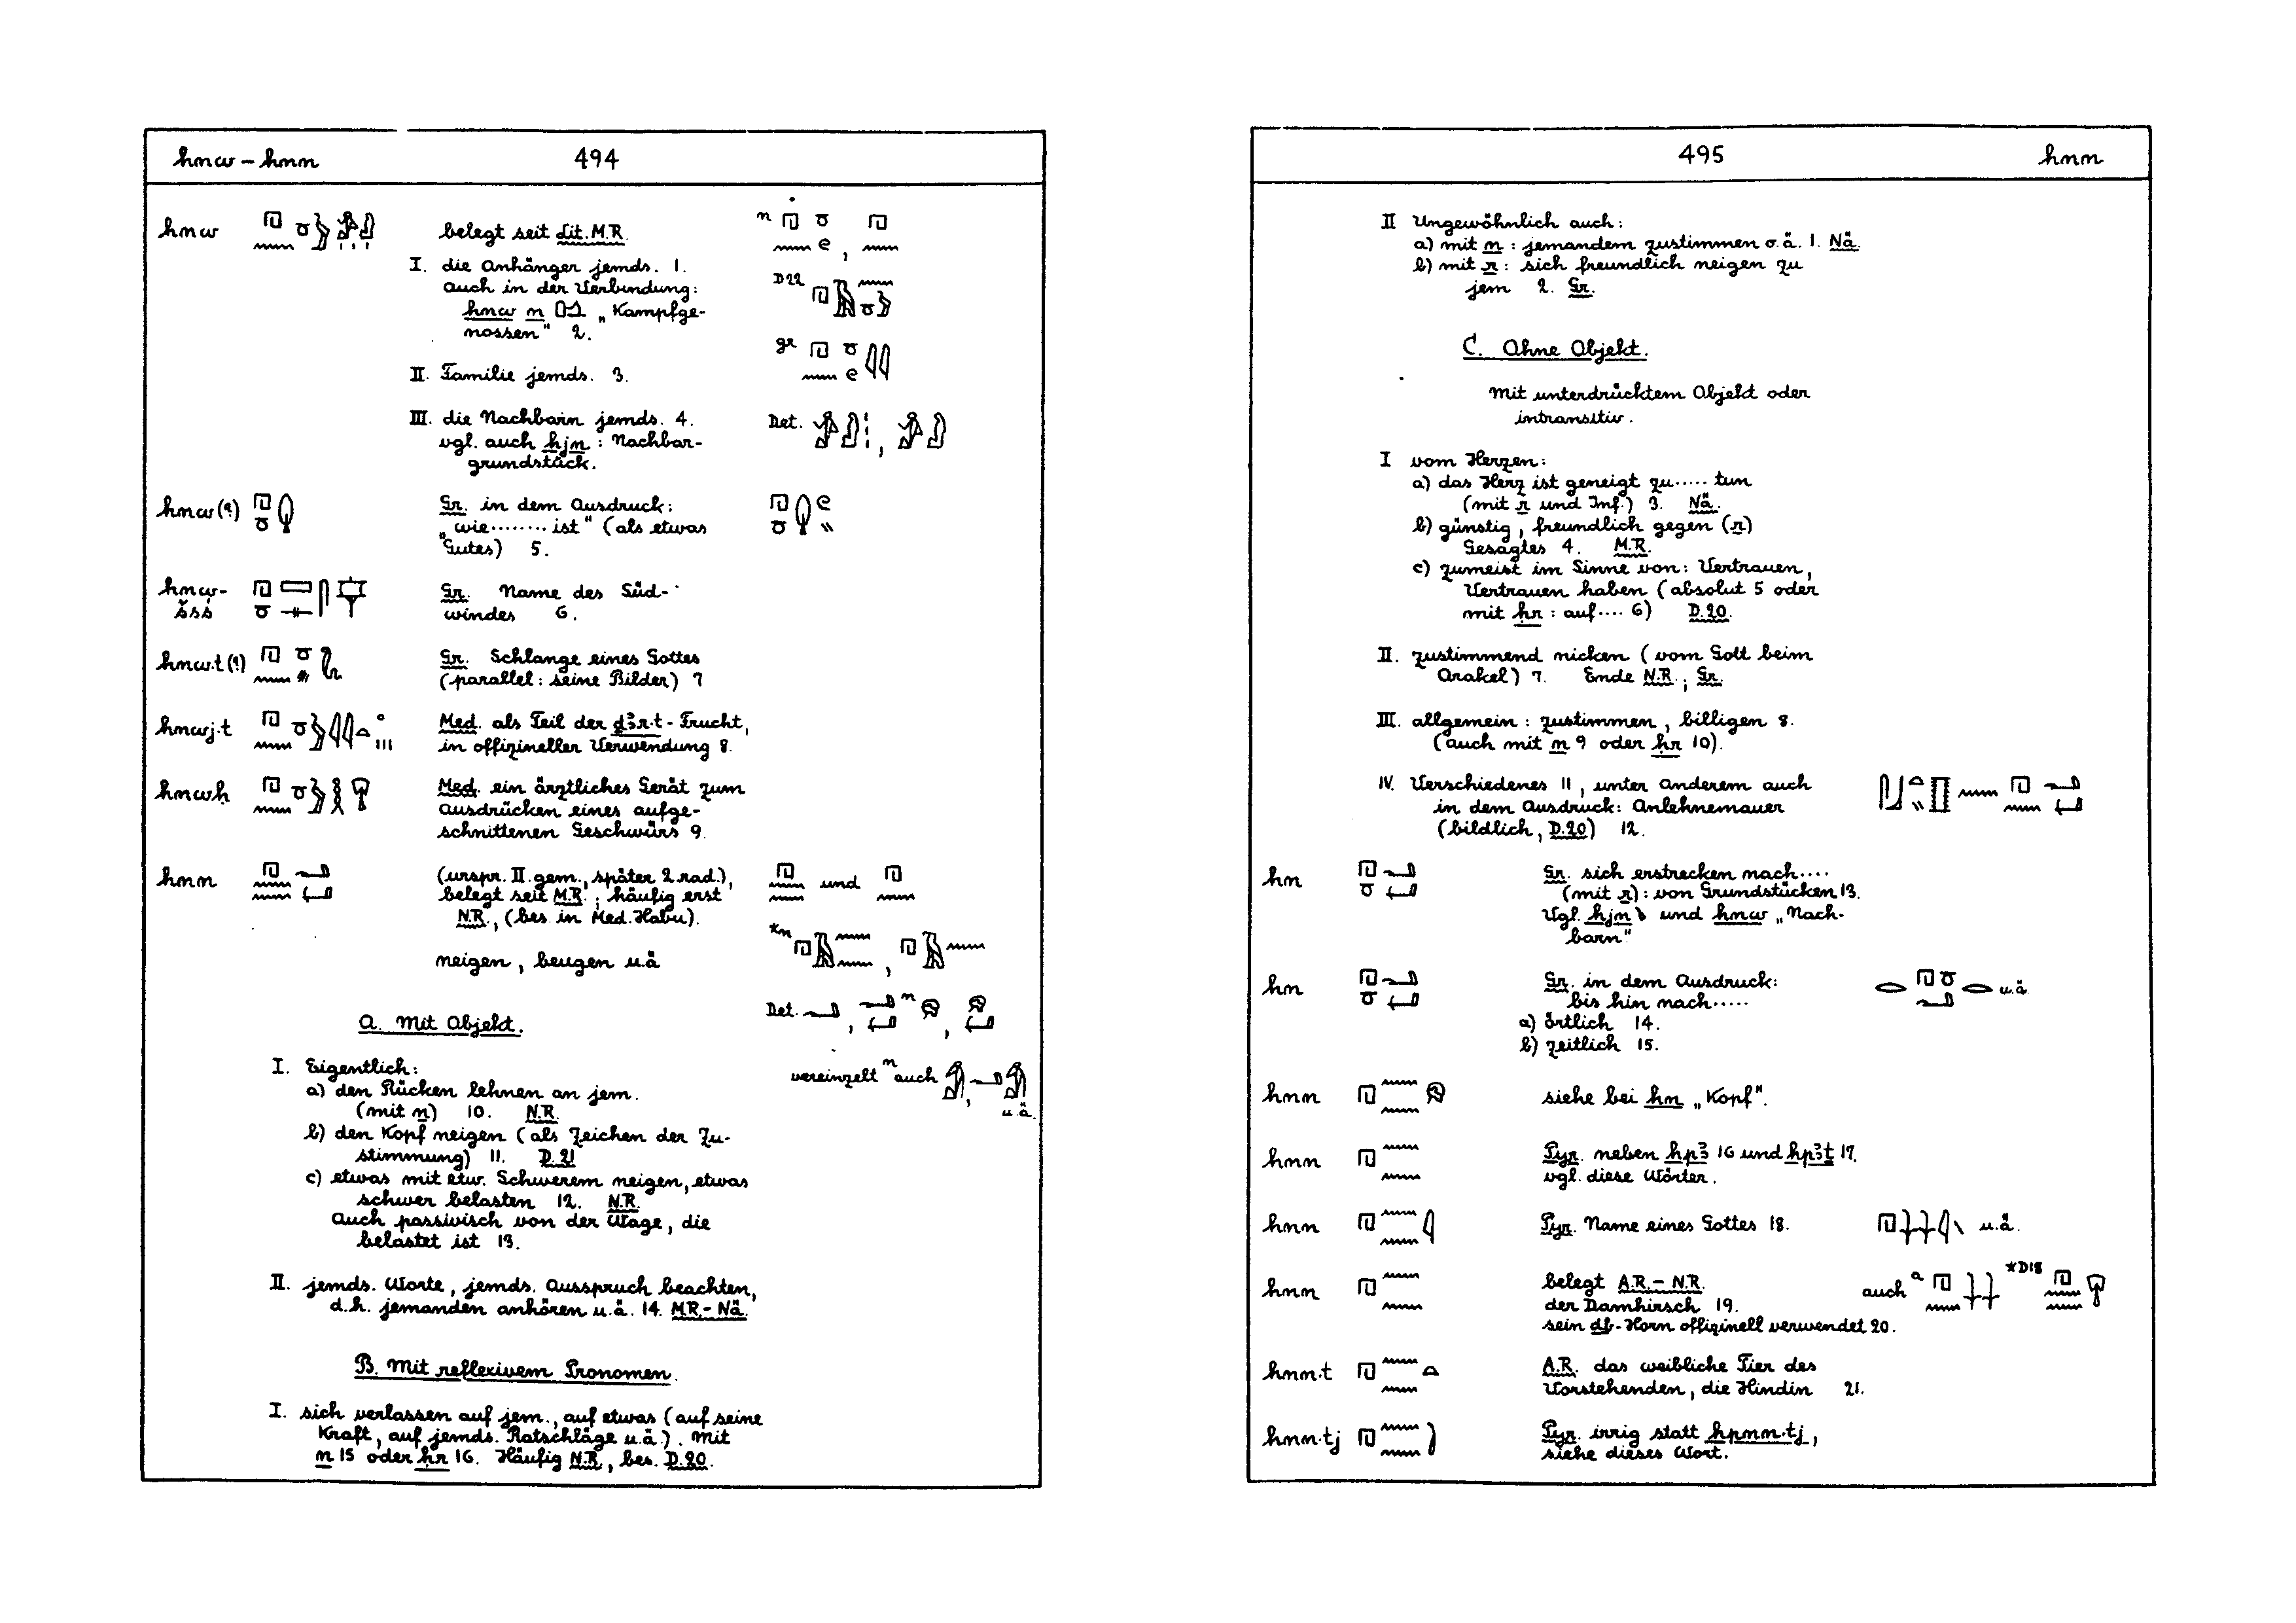 hnw – hnn 494
hnw
belegt seit Lit. M.R.
I. die Anhänger jemds. 1.
auch in der Verbindung:
hnw n „Kampfge-
nossen" 2.
II. Familie jemds. 3.
III. die Nachbarn jemds. 4.
vgl. auch hjn : Nachbar-
grundstück.
n
D22
gr
Det.
hnw (?)
Gr. in dem Ausdruck:
„wie........ ist" (als etwas
Gutes) 5.
hnw-
šsś
Gr. Name des Süd-
windes 6.
hnw.t (?)
Gr. Schlange eines Gottes
(parallel: seine Bilder) 7
hnwj.t
Med. als Teil der ḏꜣr.t - Frucht,
in offizineller Verwendung 8.
hnwḥ
Med. ein ärztliches Gerät zum
Ausdrücken eines aufge-
schnittenen Geschwürs 9.
hnn
(urspr. II. gem., später 2. rad.),
belegt seit M.R., häufig erst
N.R., (bes. in Med. Habu).
neigen, beugen u.ä
und
*n
Det.
n
vereinzelt n auch
u.ä.
A. Mit Objekt.
I. Eigentlich:
a) den Rücken lehnen an jem.
(mit n) 10. N.R.
b) den Kopf neigen (als Zeichen der Zu-
stimmung) 11. D.21
c) etwas mit etw. Schwerem neigen, etwas
schwer belasten 12. N.R.
Auch passivisch von der Wage, die
belastet ist 13.
II. jemds. Worte, jemds. Ausspruch beachten,
d.h. jemanden anhören u.ä. 14. M.R.- Nä.
B. Mit reflexivem Pronomen.
I. sich verlassen auf jem., auf etwas (auf seine
Kraft, auf jemds. Ratschläge u.ä.). Mit
n 15 oder ḥr 16. Häufig N.R., bes. D.20.
495 hnn
II Ungewöhnlich auch:
a) mit n : jemandem zustimmen o.ä. 1. Nä.
b) mit r : sich freundlich neigen zu
jem 2. Gr.
C. Ohne Objekt.
Mit unterdrücktem Objekt oder
intransitiv.
I vom Herzen:
a) das Herz ist geneigt zu..... tun
(mit r und Inf.) 3. Nä.
b) günstig, freundlich gegen (r)
Gesagtes 4. M.R.
c) zumeist im Sinne von: Vertrauen,
Vertrauen haben (absolut 5 oder
mit ḥr : auf.... 6) D.20.
II. zustimmend nicken (vom Gott beim
Orakel) 7. Ende N.R.; Gr.
III. allgemein: zustimmen, billigen 8.
(auch mit n 9 oder ḥr 10).
IV. Verschiedenes 11, unter anderem auch
in dem Ausdruck: Anlehnemauer
(bildlich, D.20) 12.
hn
Gr. sich erstrecken nach....
(mit r): von Grundstücken 13.
Vgl. hjn und hnw „Nach-
barn"
hn
Gr. in dem Ausdruck:
bis hin nach.....
a) örtlich 14.
b) zeitlich 15.
u.ä.
hnn
siehe bei hn „Kopf".
hnn
Pyr. neben hpꜣ 16 und hpꜣṯ 17.
vgl. diese Wörter.
hnn
Pyr. Name eines Gottes 18.
u.ä.
hnn
belegt A.R. – N.R.
der Damhirsch 19.
sein db - Horn offizinell verwendet 20.
auch a
*D18
hnn.t
A.R. das weibliche Tier des
Vorstehenden, die Hindin 21.
hnn.tj
Pyr. irrig statt hpnn.tj,
siehe dieses Wort.